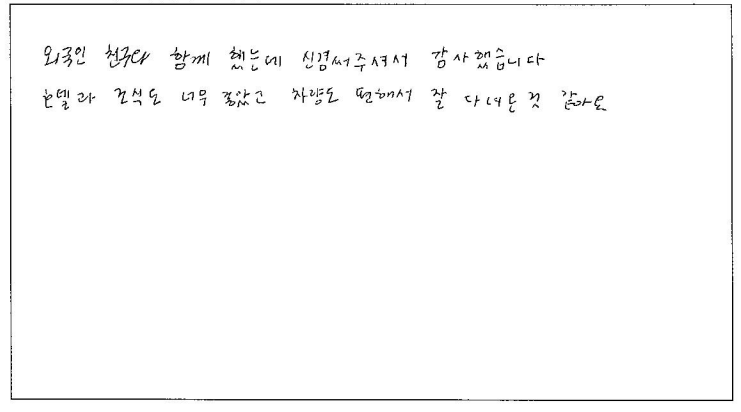 외국인 친구와 함께 했는데 신경써주셔서 감사했습니다
호텔과 조식도 너무 좋았고 차량도 편해서 잘 다녀온 것 같아요